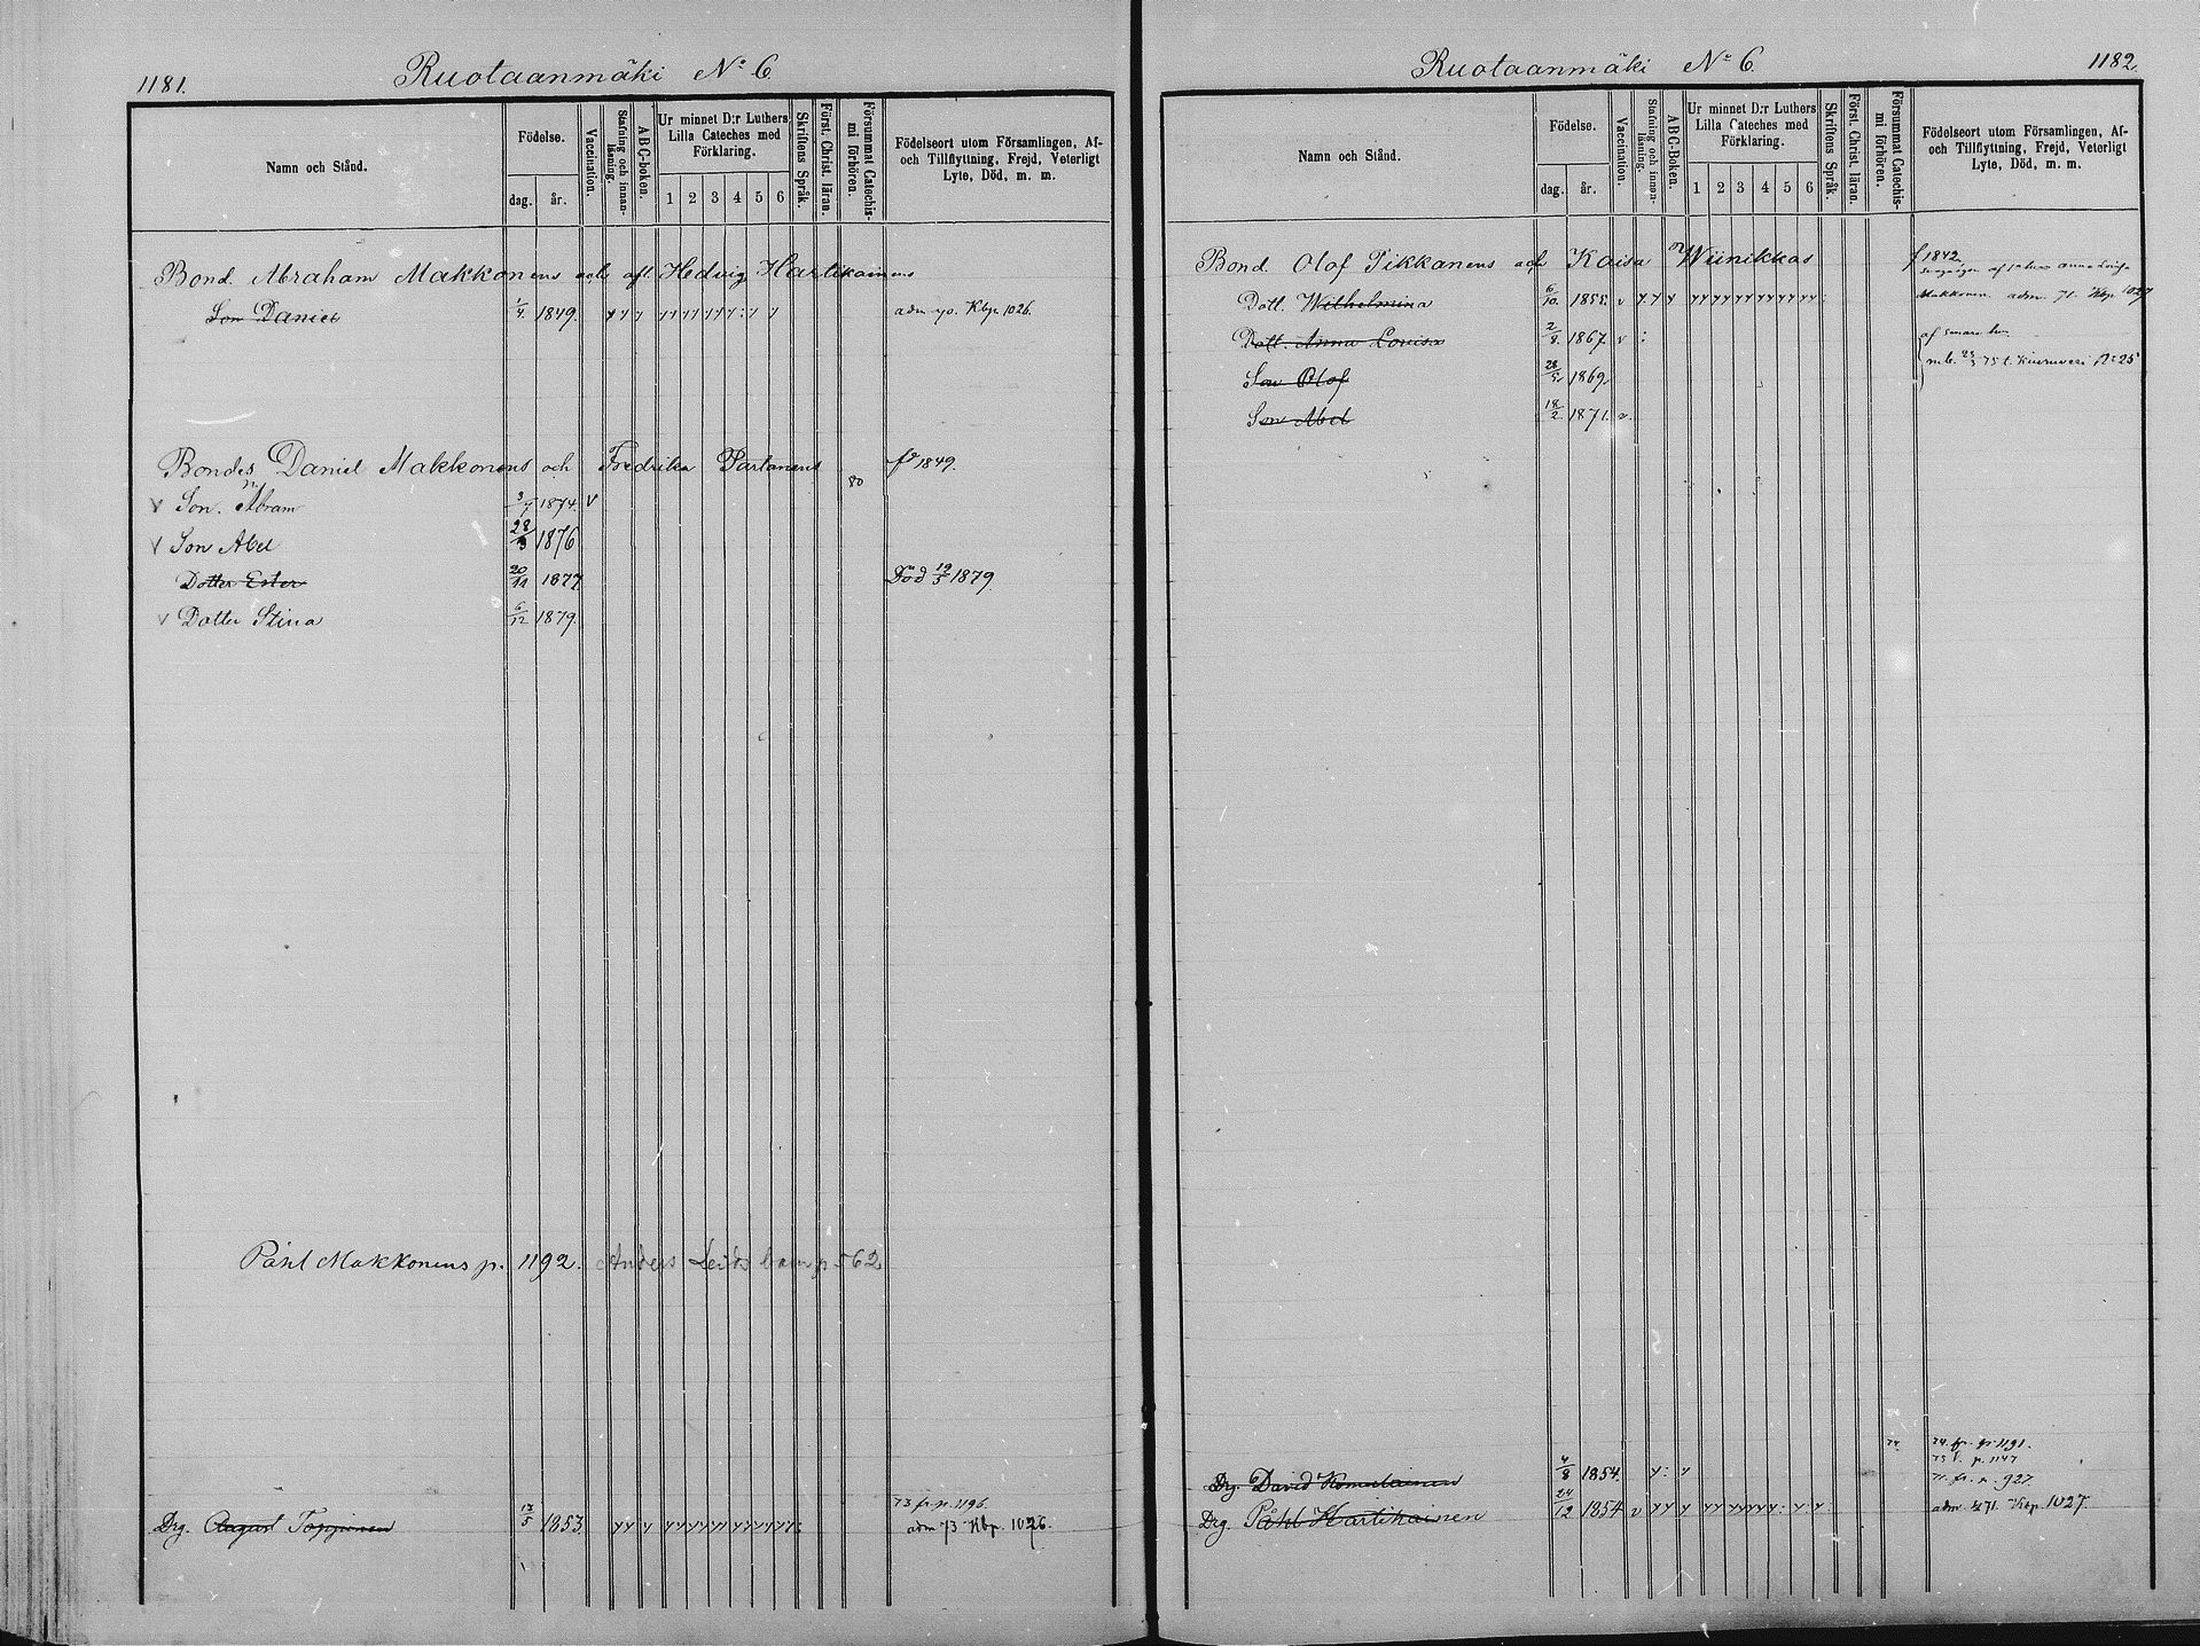 1181.
Ruotaanmäki No 6
Namn och Stånd.
Födelse.
dag.
år.
Vaccination.
Stafning och innanläsning.
ABC-boken.
Ur minnet D:r Luthers
Lilla Cateches med
Förklaring.
1 2 3 4 5 6
Skriftens Språk.
Först. Christ. läran.
Försummat Catechismi förhören.
Födelseort utom Församlingen, Af-
och Tillflyttning, Frejd, Veterligt
Lyte, Död, m. m.
Bond. Abraham Makkonens och afl. Hedvig Hartikainens
Son Daniel 1/4 1849. adm 70. Kbp 1026.
Bondes Daniel Makkonens och Fredrika Partanens f 1849.
80
v Son. Abram 3/7 1874. v
v Son Abel 28/3 1876
Dotter Ester 20/11 1877 Död 19/5 1879.
v Dotter Stina 6/12 1879.
Påhl Makkonens p. 1192. Anders barn p 562
73 fr. p. 1196.
Drg. August Toppinen 13/5 1853. adm 73 Kbp. 1026.
Ruotaanmäki No 6.
1182.
Namn och Stånd.
Födelse.
dag.
år.
Vaccination.
Stafning och innanläsning.
ABC-Boken.
Ur minnet D:r Luthers
Lilla Cateches med
Förklaring.
1 2 3 4 5 6
Skriftens Språk.
Först. Christ. läran.
Försummat Catechismi förhören.
Födelseort utom Församlingen, Af-
och Tillflyttning, Frejd, Veterligt
Lyte, Död, m. m.
Bond. Olof Pikkanens och Kaisa Wiinikkas f 1842.
Anna Lovisa
Dott. Wilhelmina 6/10. 1855. v Makkonen. adm. 71. Kbp 1027
Dott. Anna Lovisa 2/9. 1867. v : af senare
Son Olof 28/5. 1869. m. b. 75 t. Kiuruvesi No 25
Son Abel 18/2. 1871. v.
74. 74. fr. p. 1191.
75 t. p. 1147
Drg. David Komulainen 4/8 1854. 71. fr. p. 927.
Drg. Påhl Hartikainen 24/12 1854 v adm. 71. Kbp. 1027.